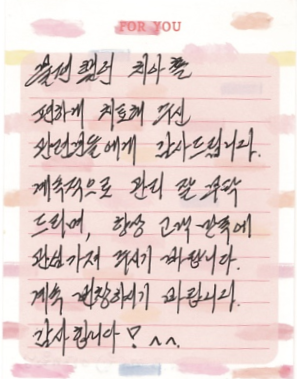 FOR YOU
불편했던 치아를
편하게 치료해 주신
관련인들에게 감사드립니다.
계속적으로 관리 잘 부탁
드리며, 항상 고객만족에
관심가져 주시기 바랍니다.
계속 번창하시기 바랍니다.
감사합니다! ^^